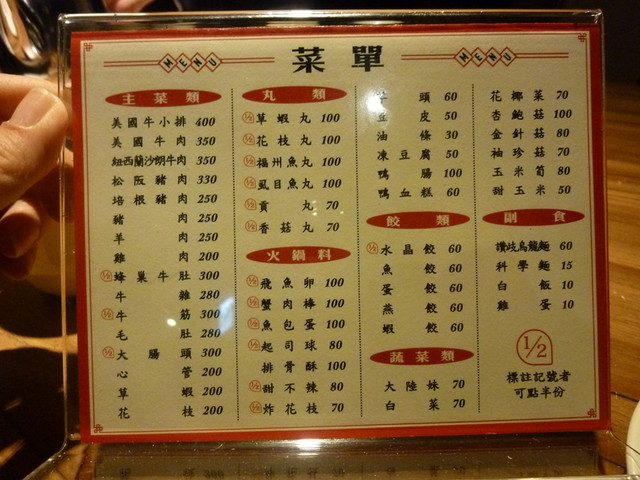 菜單
MENU
MENU
主菜類
美國牛小排 400
美國牛肉 350
紐西蘭沙朗牛肉 350
松阪豬肉 330
培根豬肉 250
豬肉 250
羊肉 250
雞肉 200
1/2 蜂巢牛肚 300
牛雜 280
1/2 牛筋 300
毛肚 280
1/2 大腸頭 300
心管 200
草蝦 200
花枝 200
丸類
1/2 草蝦丸 100
1/2 花枝丸 100
1/2 福州魚丸 100
1/2 虱目魚丸 100
1/2 貢丸 70
1/2 香菇丸 70
火鍋料
1/2 飛魚卵 100
1/2 蟹肉棒 100
1/2 魚包蛋 100
1/2 起司球 80
排骨酥 100
1/2 甜不辣 80
1/2 炸花枝 70
頭 60
皮 50
油條 30
凍豆腐 50
鴨腸 100
鴨血糕 60
餃類
1/2 水晶餃 60
魚餃 60
蛋餃 60
燕餃 60
蝦餃 60
蔬菜類
大陸妹 70
白菜 70
花椰菜 70
杏鮑菇 100
金針菇 80
袖珍菇 70
玉米筍 80
甜玉米 50
副食
讚岐烏龍麵 60
科學麵 15
白飯 10
雞蛋 10
1/2
標註記號者
可點半份